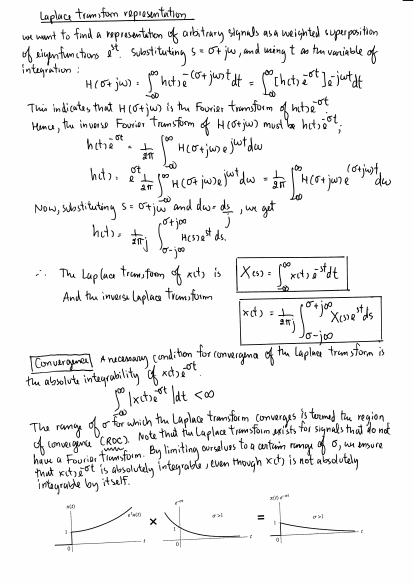 Laplace transform representation
We want to find a representation of arbitrary signals as a weighted superposition
of eigenfunctions e^st. Substituting s = σ+jω, and using t as the variable of
integration:
H(σ+jω) = ∫_{-∞}^{∞} h(t)e^{-(σ+jω)t} dt = ∫_{-∞}^{∞} [h(t)e^{-σt}] e^{-jωt} dt
This indicates that H(σ+jω) is the Fourier transform of h(t)e^{-σt}
Hence, the inverse Fourier Transform of H(σ+jω) must be h(t)e^{-σt};
h(t)e^{-σt} = 1/2π ∫_{-∞}^{∞} H(σ+jω)e^{jωt} dω
h(t) = e^{σt} 1/2π ∫_{-∞}^{∞} H(σ+jω)e^{jωt} dω = 1/2π ∫_{-∞}^{∞} H(σ+jω)e^{(σ+jω)t} dω
Now, substituting s = σ+jω and dω = ds/j, we get
h(t) = 1/2πj ∫_{σ-j∞}^{σ+j∞} H(s)e^{st} ds.
∴ The Laplace transform of x(t) is X(s) = ∫_{-∞}^{∞} x(t)e^{-st} dt
And the inverse Laplace Transform x(t) = 1/2πj ∫_{σ-j∞}^{σ+j∞} X(s)e^{st} ds
Convergence A necessary condition for convergence of the Laplace transform is
the absolute integrability of x(t)e^{-σt}.
∫_{-∞}^{∞} |x(t)e^{-σt}| dt < ∞
The range of σ for which the Laplace transform converges is termed the region
of convergence (ROC). Note that the Laplace transform exists for signals that do not
have a Fourier transform. By limiting ourselves to a certain range of σ, we ensure
that x(t)e^{-σt} is absolutely integrable, even though x(t) is not absolutely
integrable by itself.
x(t) e^t u(t) 1 0 t × e^{-σt} σ>1 1 0 t = x(t) e^{-σt} σ>1 1 0 t